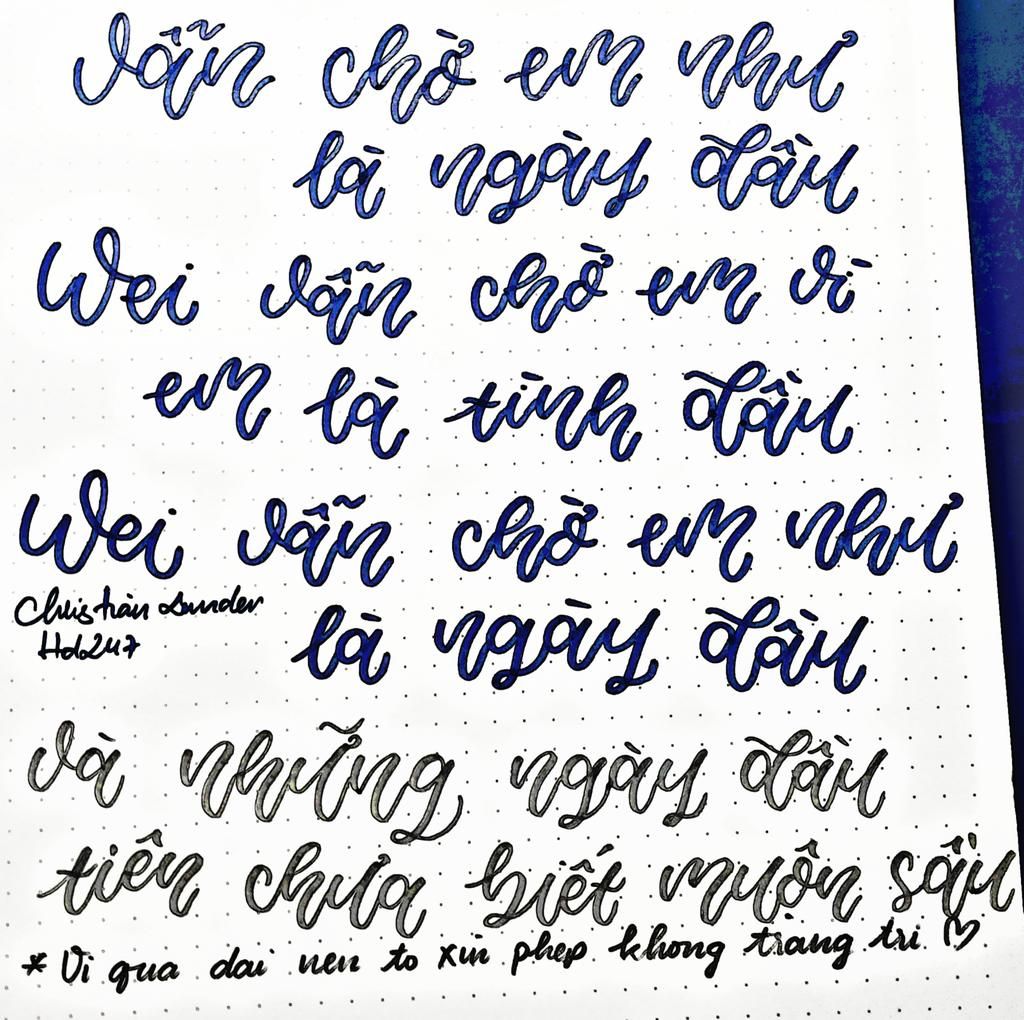 Vẫn chờ em như
là ngày đầu
Wei vẫn chờ em vì
em là tình đầu
Wei vẫn chờ em như
là ngày đầu
Christian Sunder
Hd247
Và những ngày đầu
tiên chưa biết muôn sầu
* Vi qua dai nen to xin phep khong trang tri ♡